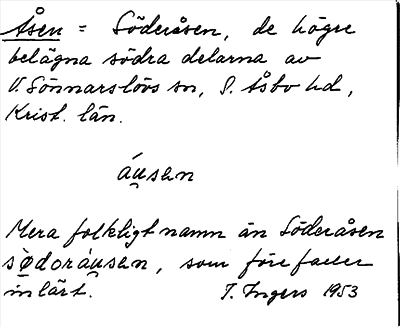 Åsen = Söderåsen, de högre
belägna södra delarna av
V. Sönnarslövs sn, S. Åsbo hd,
Krist. län.
áu̯sən
Mera folkligt namn än Söderåsen
sø̀dəráu̯sən, som förefaller
inlärt. T. Ingers 1953